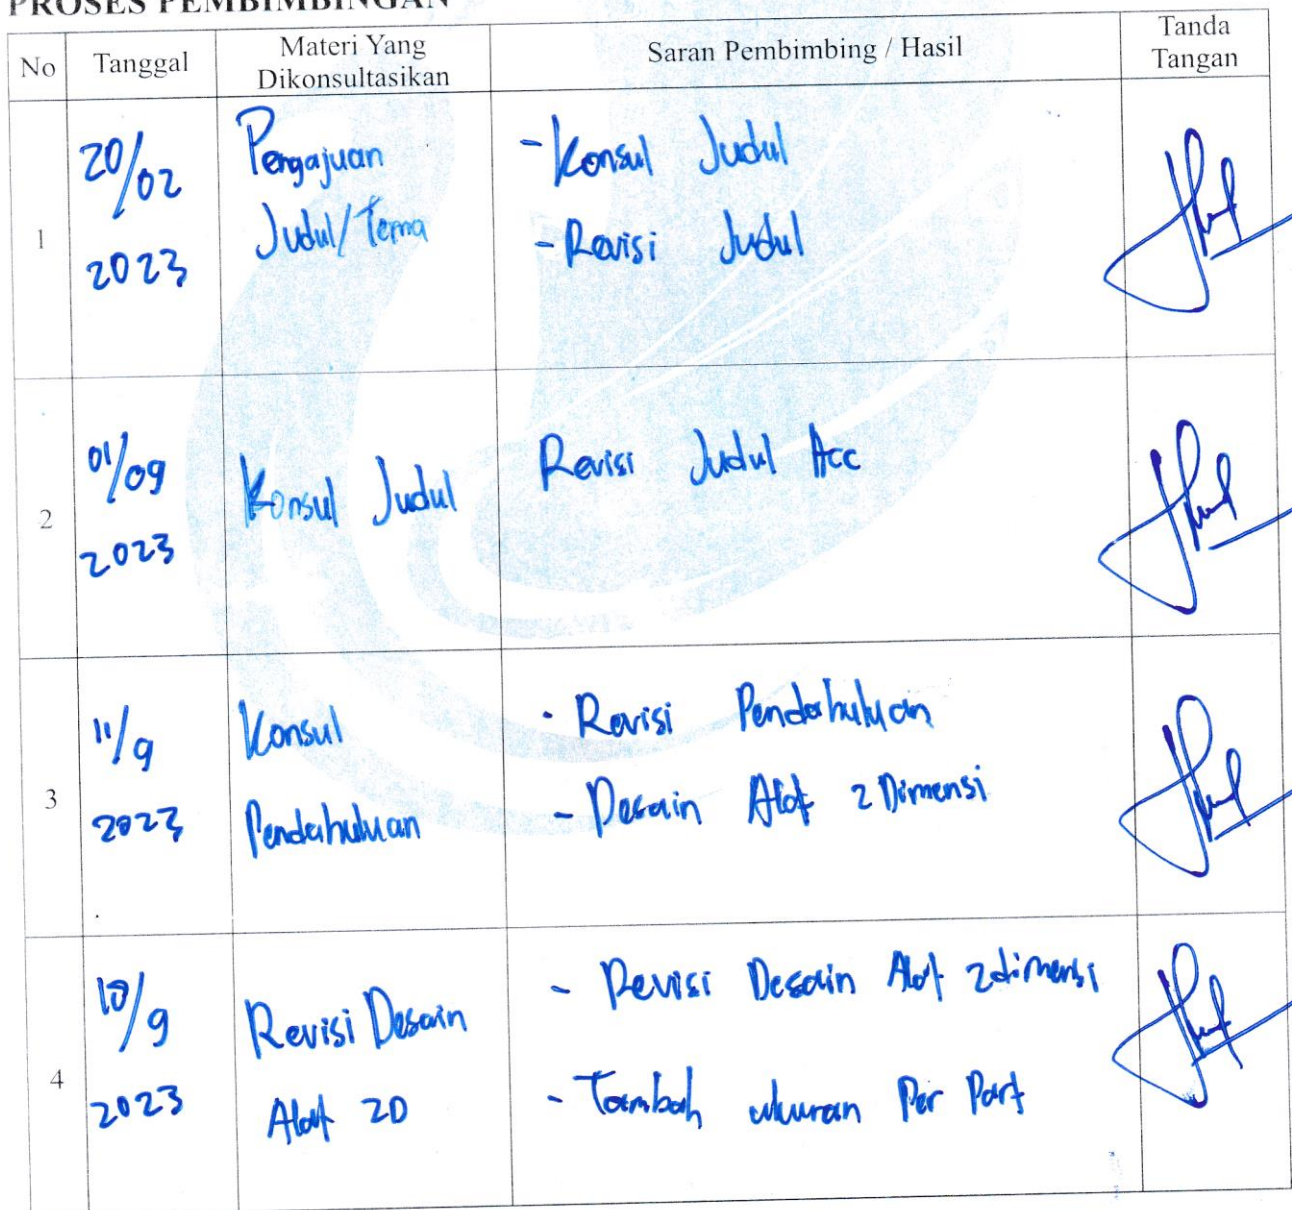 PROSES PEMBIMBINGAN
No
Tanggal
Materi Yang
Dikonsultasikan
Saran Pembimbing / Hasil
Tanda
Tangan
1
20/02
2023
Pengajuan
Judul/Tema
- Konsul Judul
- Revisi Judul
2
01/09
2023
Konsul Judul
Revisi Judul Acc
3
11/9
2023
Konsul
Pendahuluan
- Revisi Pendahuluan
- Desain Alat 2 Dimensi
4
/9
2023
Revisi Desain
Alat 2D
- Revisi Desain Alat 2dimensi
- Tambah ukuran Per Part